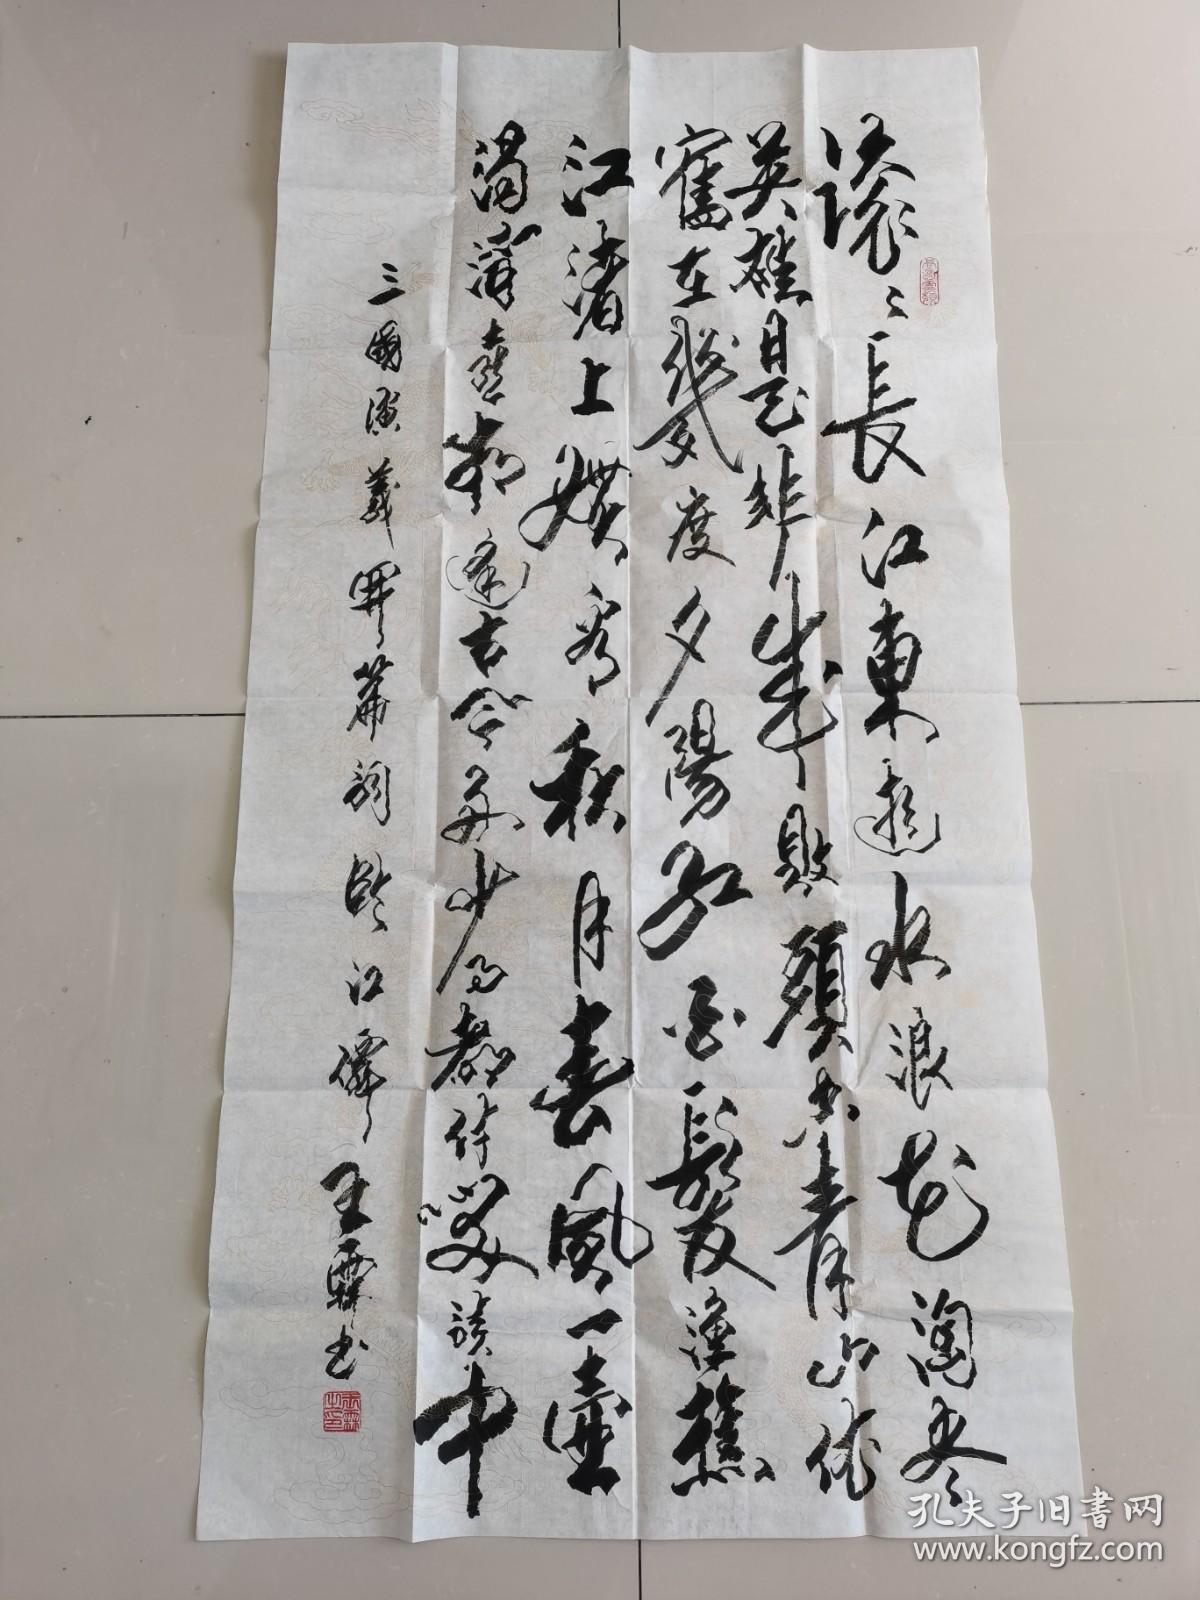 滚〻長江東逝水浪花淘尽
英雄是非成敗頭空青山依
舊在幾度夕陽红白髮渔樵
江渚上惯看秋月春風一壷
濁酒喜相逢古今多少事都付笑談中
三國演義開篇詞臨江僊
王霖书
孔夫子旧书网
www.kongfz.com